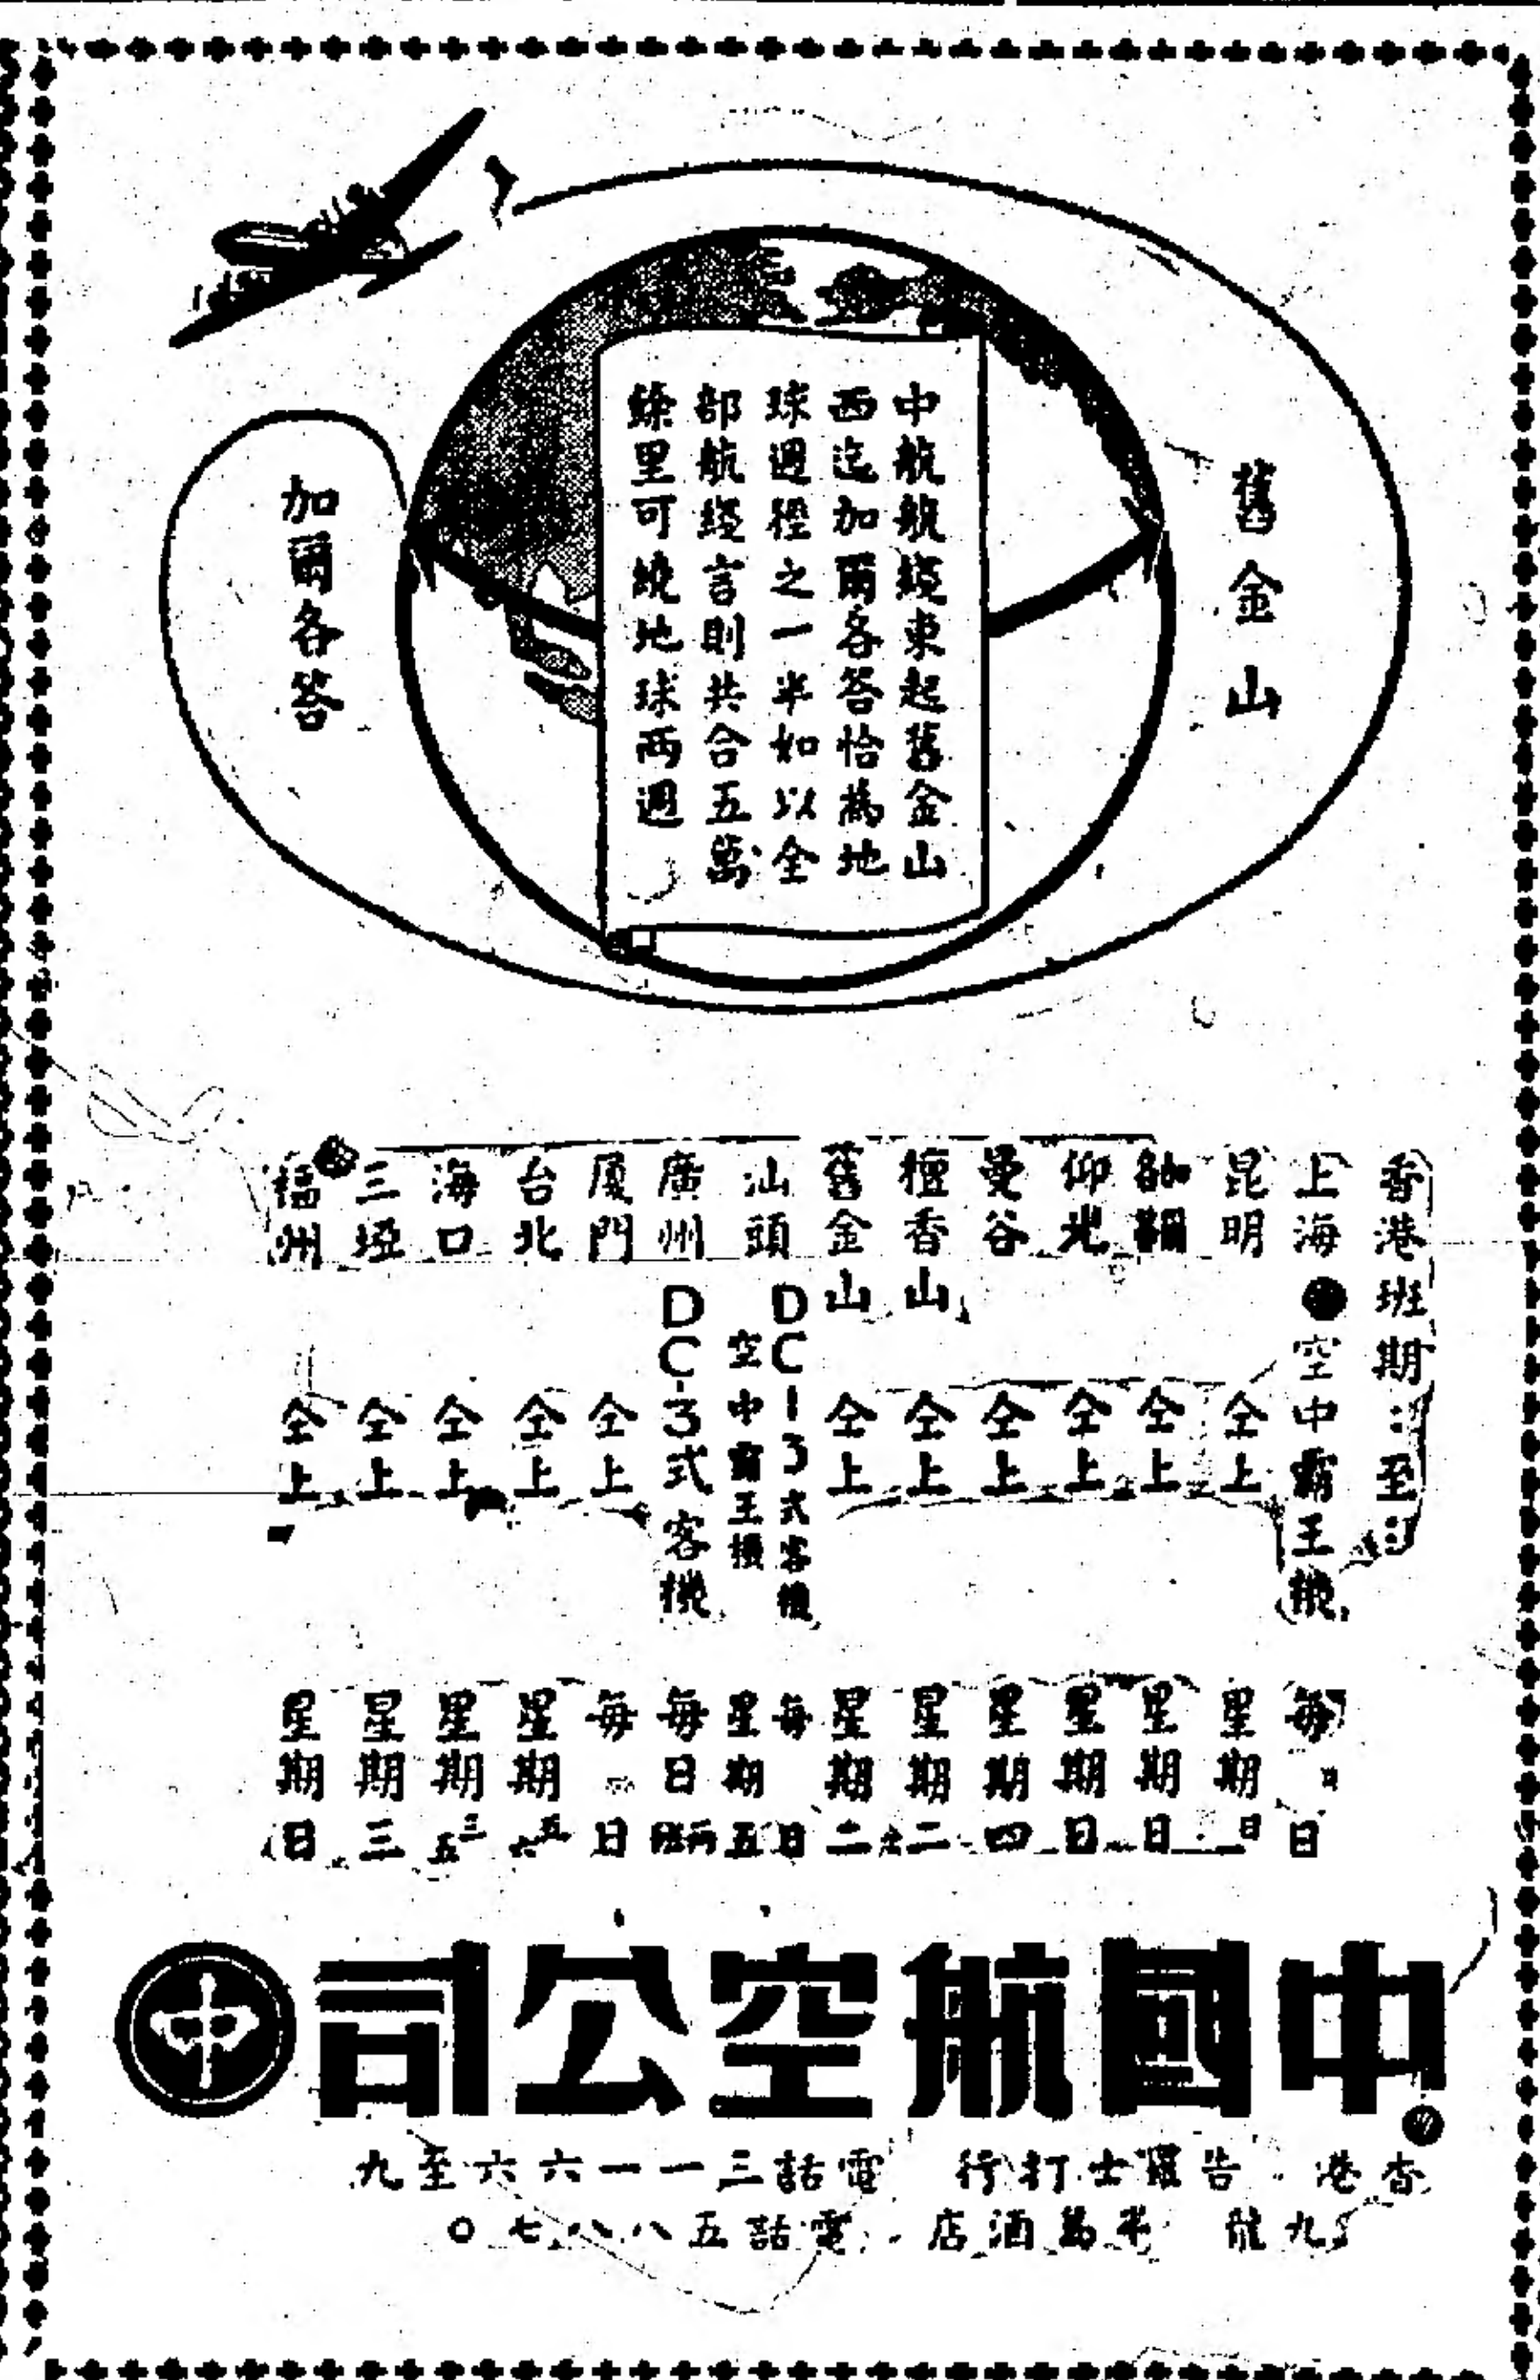 舊金山
加爾各答
中航航綫東起舊金山
西迄加爾各答恰為地
球週徑之一半如以全
部航綫言則共合五萬
餘里可繞地球兩週
香港班期：至：
上海 空中霸王機 每日
昆明 仝上 星期日
仝上 星期日
仰光 仝上 星期日
曼谷 仝上 星期四
檀香山 仝上 星期二
舊金山 仝上 星期二
汕頭 DC-3式客機 每日
空中霸王機 星期五
廣州 DC-3式客機 每日兩班
厦門 仝上 每日
台北 仝上 星期五六
海口 仝上 星期三五
三埡 仝上 星期三
福州 仝上 星期日
中國航空公司
香港 告羅士打行 電話三一一六六至九
九龍 半島酒店 電話五八八七〇